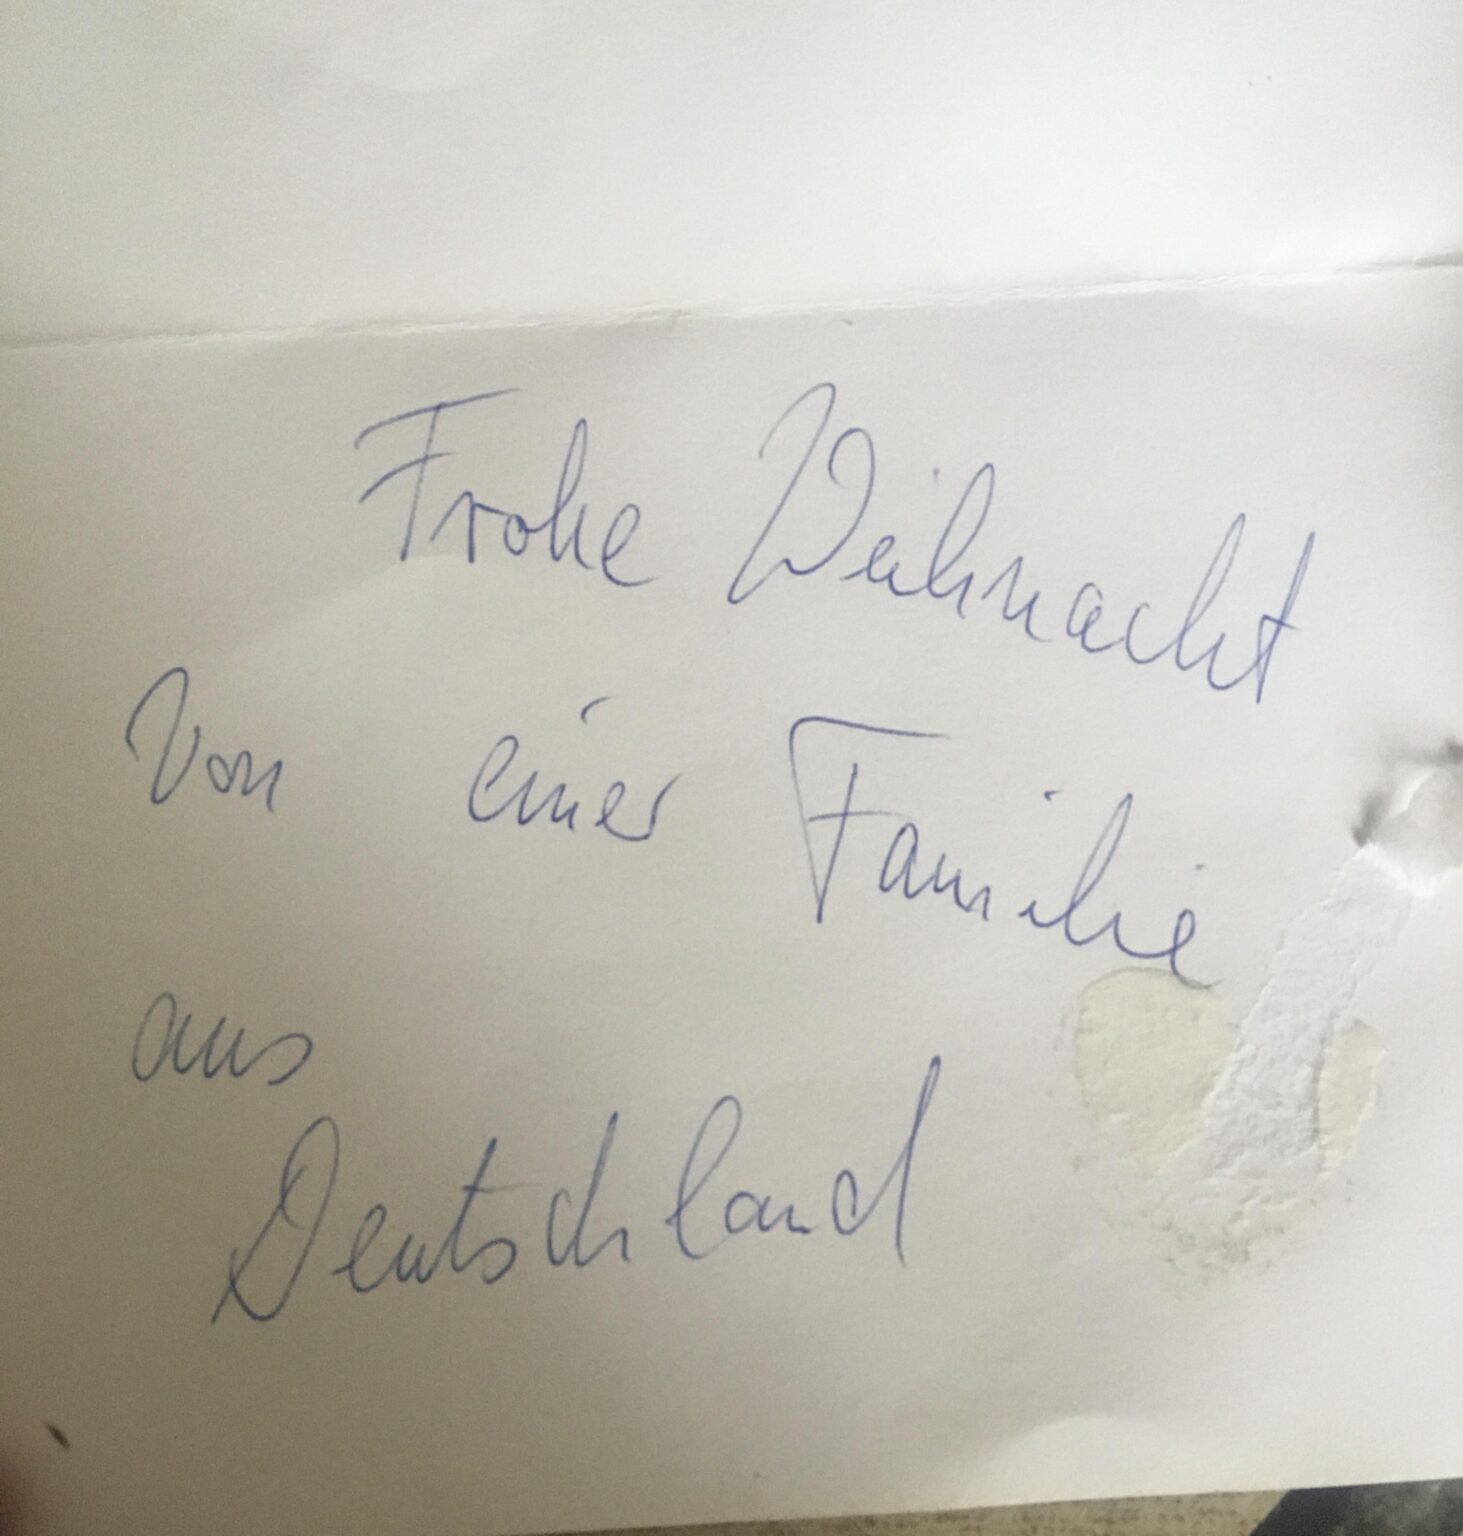 Frohe Weihnacht
Von einer Familie
aus
Deutschland